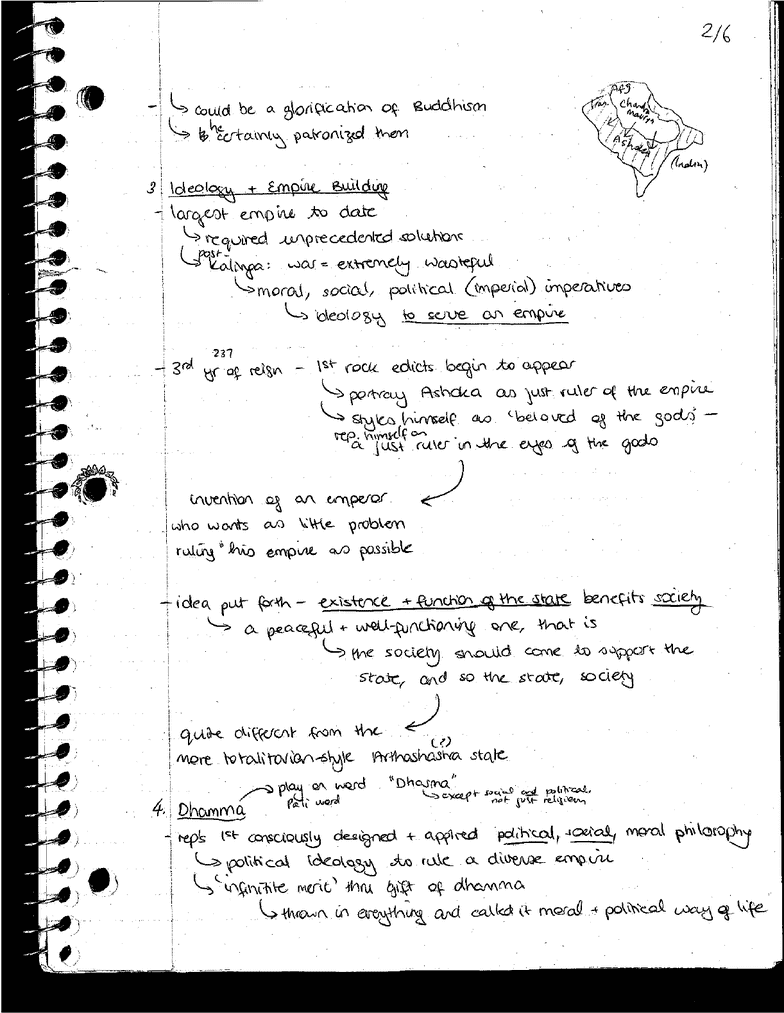 2/6
- ↳ could be a glorification of Buddhism
↳ he certainly patronized them
Afg
Iran
Chandra
Maurya
Ashoka
(India)
3 Ideology + Empire Building
- largest empire to date
↳ required unprecedented solutions
↳ post-Kalinga: war = extremely wasteful
↳ moral, social, political (imperial) imperatives
↳ ideology to serve an empire
237
- 3rd yr of reign - 1st rock edicts begin to appear
↳ portray Ashoka as just ruler of the empire
↳ styles himself as 'beloved of the gods' -
rep. himself as
a just ruler in the eyes of the gods
invention of an emperor
who wants as little problem
ruling his empire as possible
- idea put forth - existence + function of the state benefits society
↳ a peaceful + well-functioning one, that is
↳ the society should come to support the
state, and so the state, society
quite different from the
more totalitarian-style Arthashastra (?) state
→ play on word "Dharma"
Pali word
↳ except social and political,
not just religion
4. Dhamma
- rep's 1st consciously designed + applied political, social, moral philosophy
↳ political ideology to rule a diverse empire
↳ 'infinitite merit' thru gift of dhamma
↳ thrown in everything and called it moral + political way of life